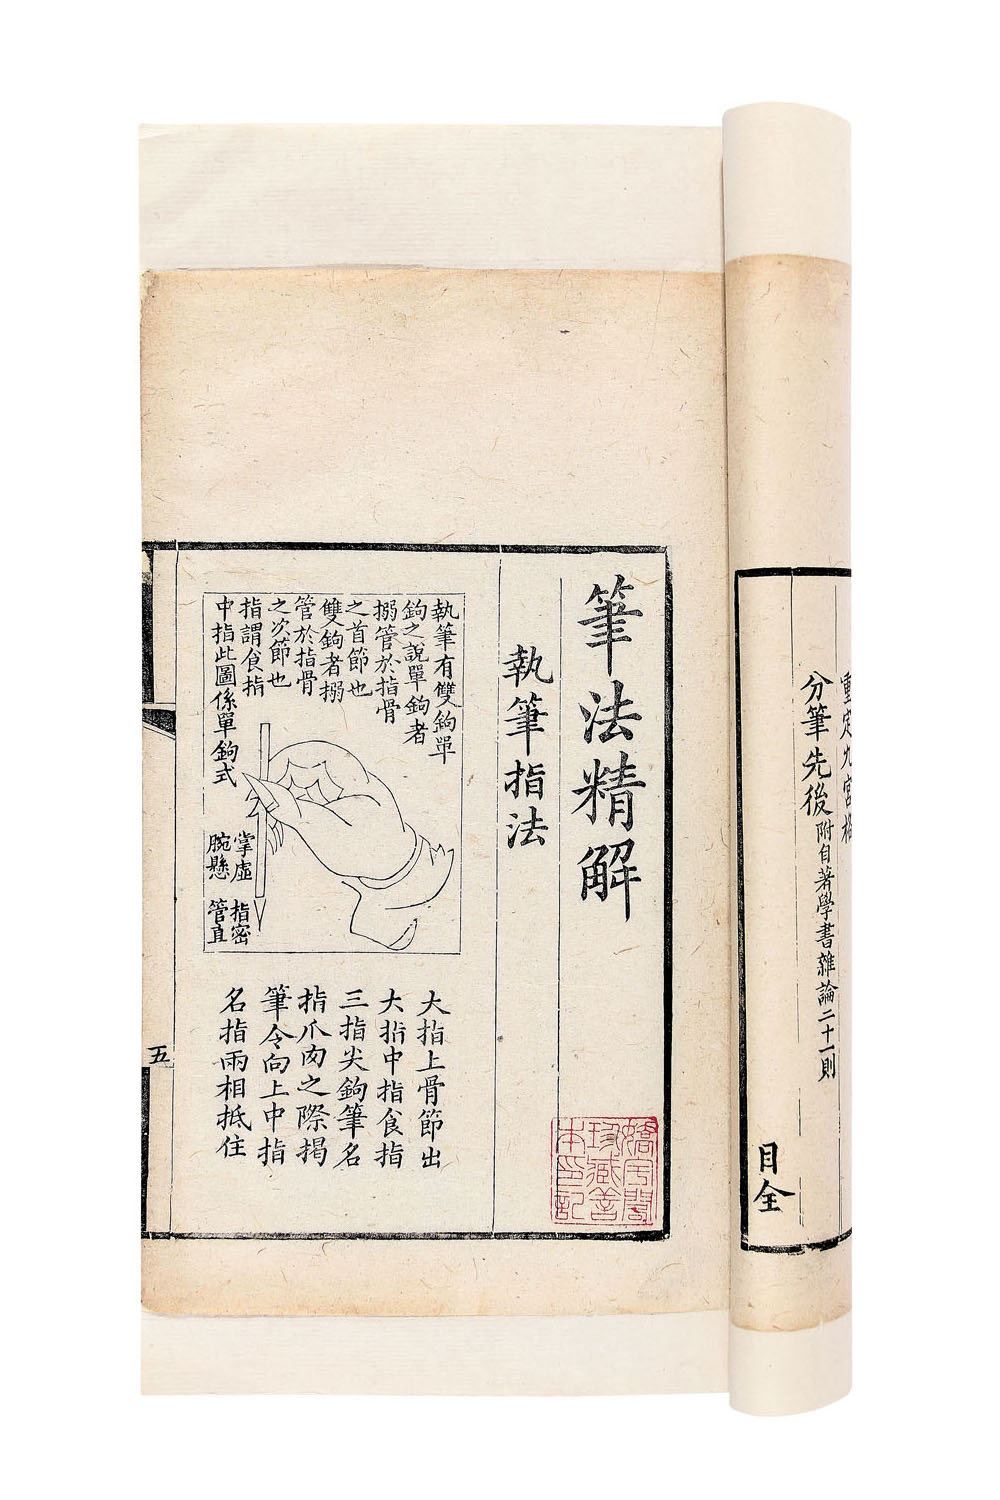 重定九宮格
分筆先後附自著學書雜論二十一則
目全
筆法精解
執筆指法
執筆有雙鉤單
鉤之說單鉤者
搦管於指骨
之首節也
雙鉤者搦
管於指骨
之次節也
指謂食指
中指此圖係單鉤式
掌虛 指密
腕懸 管直
大指上骨節出
大指中指食指
三指尖鉤筆名
指爪肉之際揭
筆令向上中指
名指兩相抵住
五
珍藏善
本印記